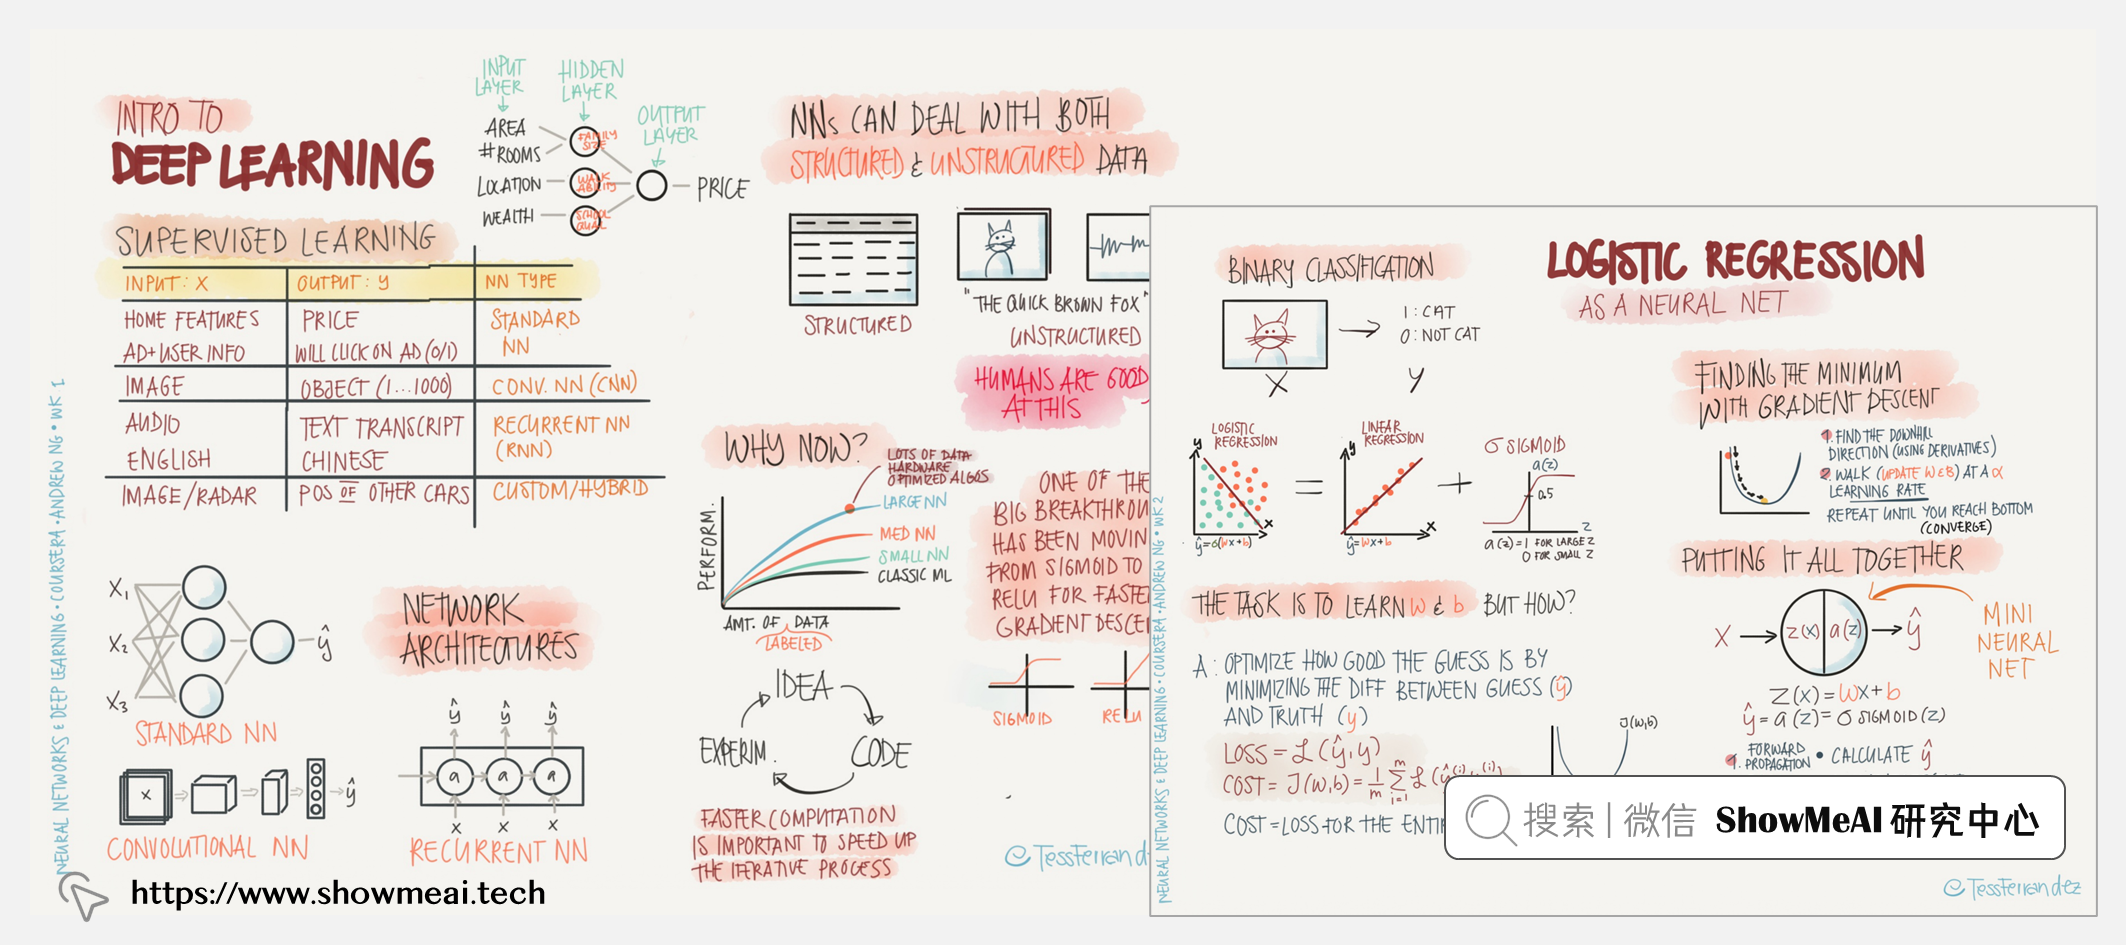 INTRO TO
DEEP LEARNING
SUPERVISED LEARNING
INPUT: X OUTPUT: y NN TYPE
HOME FEATURES PRICE STANDARD
AD+USER INFO WILL CLICK ON AD (0/1) NN
IMAGE OBJECT (1...1000) CONV. NN (CNN)
AUDIO TEXT TRANSCRIPT RECURRENT NN
ENGLISH CHINESE (RNN)
IMAGE/RADAR POS OF OTHER CARS CUSTOM/HYBRID
INPUT
LAYER
HIDDEN
LAYER
OUTPUT
LAYER
AREA
#ROOMS
LOCATION
WEALTH
FAMILY
SIZE
WALK
ABILITY
SCHOOL
QUAL
PRICE
X1
X2
X3
ŷ
STANDARD NN
NETWORK
ARCHITECTURES
X
ŷ
CONVOLUTIONAL NN
ŷ ŷ ŷ
a a a
X X X
RECURRENT NN
NEURAL NETWORKS & DEEP LEARNING • COURSERA • ANDREW NG • WK 1
NNs CAN DEAL WITH BOTH
STRUCTURED & UNSTRUCTURED DATA
STRUCTURED
"THE QUICK BROWN FOX"
UNSTRUCTURED
HUMANS ARE GOOD
AT THIS
WHY NOW?
LOTS OF DATA
HARDWARE
OPTIMIZED ALGOS
LARGE NN
MED NN
SMALL NN
CLASSIC ML
PERFORM.
AMT. OF DATA
LABELED
IDEA
CODE
EXPERIM.
FASTER COMPUTATION
IS IMPORTANT TO SPEED UP
THE ITERATIVE PROCESS
ONE OF THE
BIG
HAS BEEN
FROM SIGMOID TO
RELU FOR
GRADIENT
SIGMOID
RELU
https://www.showmeai.tech
LOGISTIC REGRESSION
AS A NEURAL NET
BINARY CLASSIFICATION
1: CAT
0: NOT CAT
X y
LOGISTIC
REGRESSION
y
x
ŷ=σ(wx+b)
=
LINEAR
REGRESSION
y
x
ŷ=wx+b
+
σ SIGMOID
a(z)
0.5
z
a(z)=1 FOR LARGE z
0 FOR SMALL z
THE TASK IS TO LEARN w & b BUT HOW?
A: OPTIMIZE HOW GOOD THE GUESS IS BY
MINIMIZING THE DIFF BETWEEN GUESS (ŷ)
AND TRUTH (y)
LOSS = ℒ(ŷ,y)
COST = J(w,b) = 1/m Σ i=1 m ℒ(ŷ(i), y(i))
COST = LOSS FOR THE
J(w,b)
FINDING THE MINIMUM
WITH GRADIENT DESCENT
1. FIND THE DOWNHILL
DIRECTION (USING DERIVATIVES)
2. WALK (UPDATE W & B) AT A α
LEARNING RATE
REPEAT UNTIL YOU REACH BOTTOM
(CONVERGE)
PUTTING IT ALL TOGETHER
X z(x) a(z) ŷ
MINI
NEURAL
NET
Z(x) = wx+b
ŷ = a(z) = σ SIGMOID(z)
1. FORWARD
PROPAGATION • CALCULATE ŷ
搜索 | 微信 ShowMeAI 研究中心
@TessFerrandez
NEURAL NETWORKS & DEEP LEARNING • COURSERA • ANDREW NG • WK 2